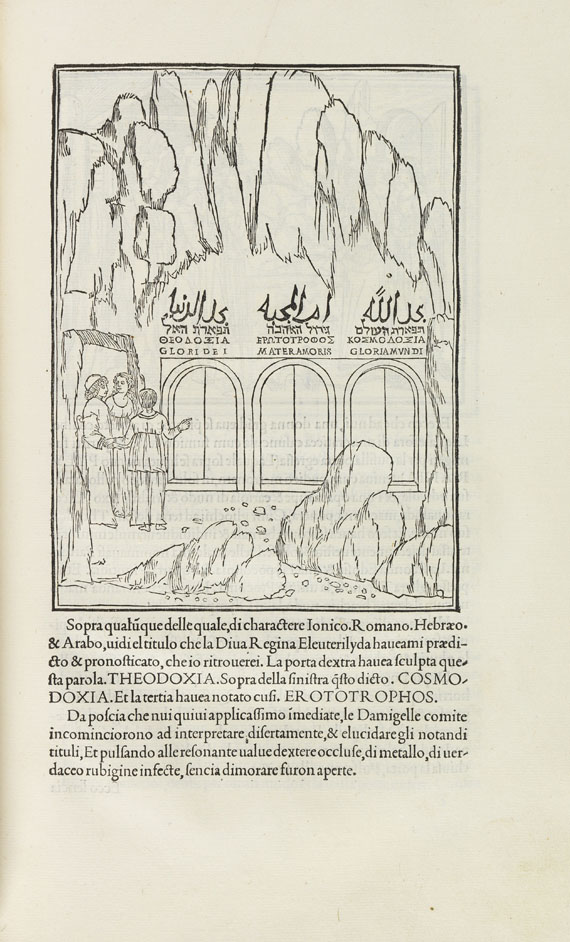 مجد الدنيا ام المحبه مجد الله
תפארת האל גידול האהבה תפארת העולם
ΘΕΟΔΟΞΙΑ ΕΡΩΤΟΤΡΟΦΟΣ ΚΟΣΜΟΔΟΞΙΑ
GLORI DEI MATER AMORIS GLORIA MVNDI
Sopra qualūque delle quale, di charactere Ionico. Romano. Hebræo.
& Arabo, uidi el titulo che la Diua Regina Eleuterilyda haueami prædi-
cto & pronosticato, che io ritrouerei. La porta dextra hauea sculpta que-
sta parola. THEODOXIA. Sopra della sinistra q̃sto dicto. COSMO-
DOXIA. Et la tertia hauea notato cusi. EROTOTROPHOS.
Da poscia che nui quiui applicassimo īmediate, le Damigelle comite
incominciorono ad interpretare, disertamente, & elucidare gli notandi
tituli, Et pulsando alle resonante ualue dextere occluse, di metallo, di uer-
daceo rubigine infecte, sencia dimorare furon aperte.